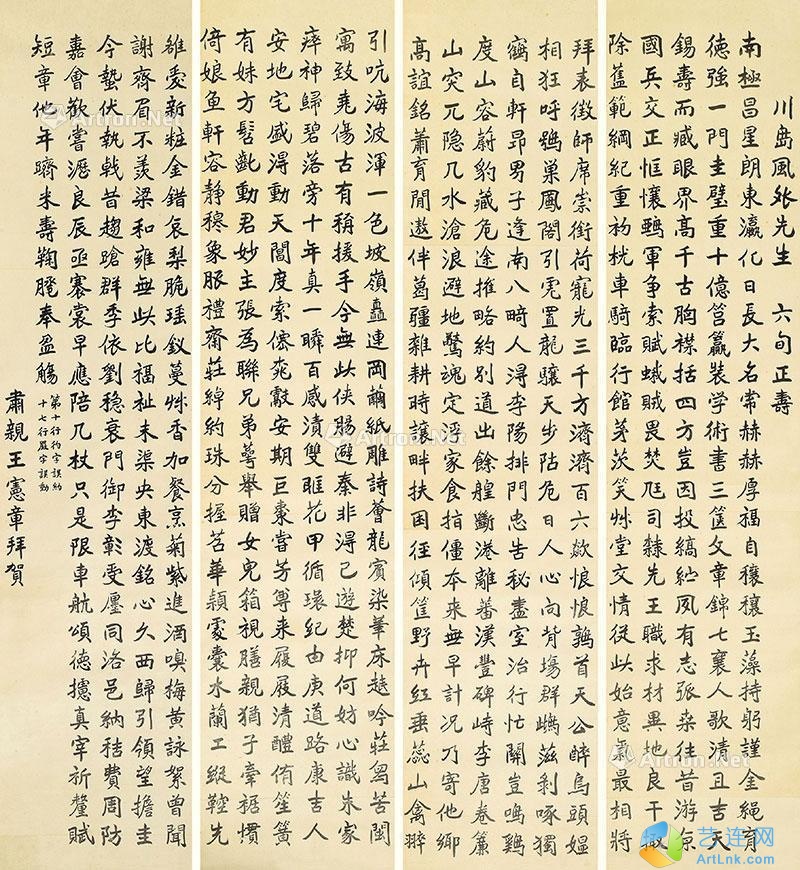 川島風外先生 六旬正壽
南極昌星朗東瀛化日長大名常赫赫厚福自穰穰玉藻持躬謹金繩育
德強一門圭璧重十億筥籯裝學術書三篋文章錦七襄人歌清且古天
錫壽而臧眼界高千古胸襟括四方豈因投縞紵夙有志張桑往昔游京
國兵交正恇懹鸜軍爭索賦蛾賊畏焚尫司隸先王職求材異地良干掫
除舊範綱紀重礿桄車騎臨行館茅茨笑艸堂交情從此始意氣最相將
拜表徵師席崇銜荷寵光三千方濟濟百六欻悢悢鶉首天公醉烏頭媼
相狂呼鴞巢鳳閣引虎置龍驤天步阽危日人心向背場群鵂滋剝啄獨
鶴自軒昂男子逢南八畸人得李陽排門忠告秘盡室治行忙關豈鳴雞
度山容蔚豹藏危途推略約別道出餘艎斷港離蕃漢豐碑峙李唐卷簾
山突兀隱几水滄浪避地驚魂定浮家食指僵本來無早計況乃寄他鄉
高誼銘蕭育閒遨伴葛疆雜耕時讓畔扶困徑傾筐野卉紅垂蕊山禽翠
引吭海波渾一色坡嶺矗連岡繭紙雕詩薈龍賓染華床越吟莊舄苦閩
寓致堯傷古有稱援手今無此俠腸避秦非得已遊楚抑何妨心識朱家
瘁神歸碧落旁十年真一瞬百感漬雙眶花甲循環紀由庚道路康吉人
安地宅盛得動天閽度索儒宛敲安期巨棗嘗芳尊來屐屐清醴侑笙簧
有妹方髫齔動君妙主張為聯兄弟蕚舉贈女兒箱視膳親猶子牽裾慣
倚娘魚軒容靜穆象服禮齋莊綽約珠分握苕華穎處囊水蘭工縱鞚先
雒愛新粧金錯哀梨脆瑤釵蔓艸香加餐烹菊紫進酒嗅梅黃詠絮曾聞
謝齊眉不羨梁和雍無此比福祉未渠央東渡銘心久西歸引領望擔圭
今蟄伏執戟昔趨蹌群季依劉穩衰門御李彰受廛同洛邑納秸費周防
嘉會歡嘗瀝良辰亟褰裳早應陪几杖只是限車航頌德攄真宰祈釐賦
短章他年躋米壽鞠䠆奉盈觴
第十行礿字誤約
十七行嚴字誤動
肅親王憲章拜賀
Artron.Net
艺连网
ArtLnk.com